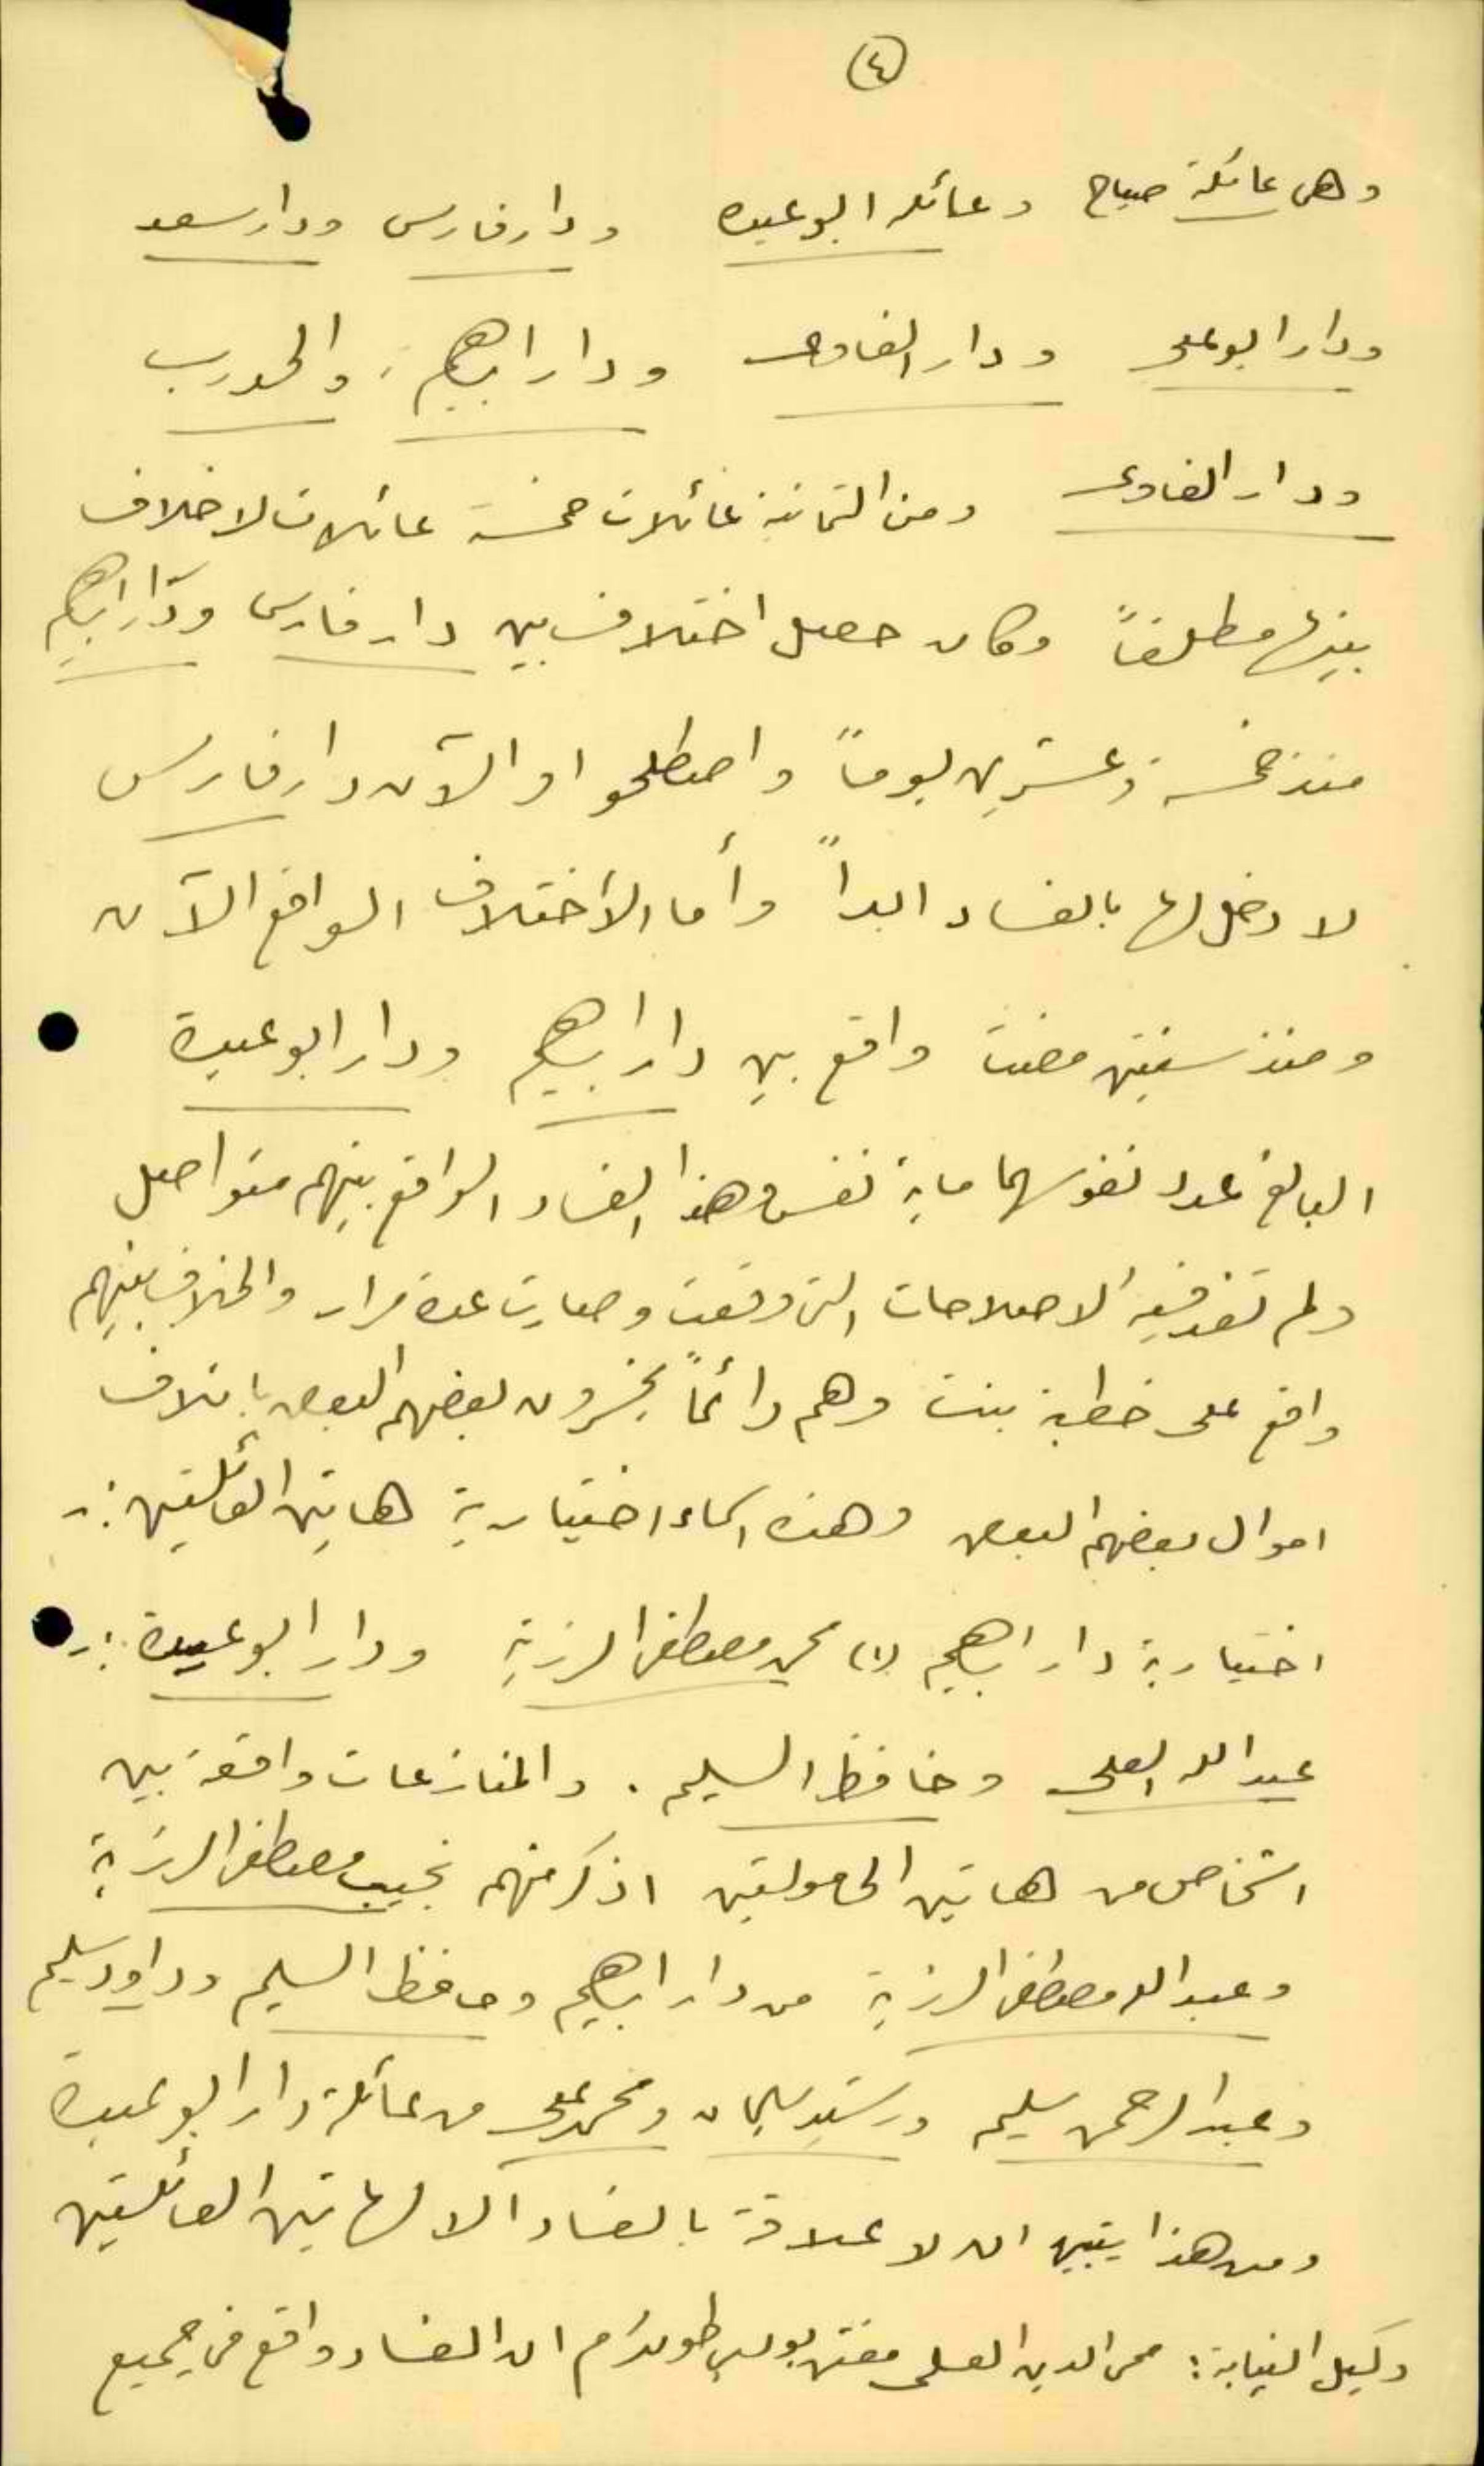 ٤
وهي عائلة صباح وعائلة ابو عبيده ودار فارس ودار سعد
ودار ابو علي ودار الغاوي ودار ابراهيم، والحدرب
ودار الغاوي ومن الثمانية عائلات خمسة عائلات لا خلاف
بينها مطلقاً وكان حصل اختلاف بين دار فارس ودار ابراهيم
منذ خمسة وعشرين يوماً واصطلحوا والآن دار فارس
لا دخل لها بالفساد ابداً وأما الاختلاف الواقع الآن
ومنذ سنتين مضت واقع بين دار ابراهيم ودار ابو عبيدة
البالغ عدد نفوسهما ماية نفس وهذا الفساد الواقع بينهم متواصل
ولم تفد فيه الاصلاحات التي وقعت وصارت عدة مرار والخلاف بينهم
واقع على خطبة بنت وهم دائماً يخسرون بعضهم البعض باتلاف
اموال بعضهم البعض وهذه اسماء اختيارية هاتين العائلتين :-
اختيارية دار ابراهيم (١) محمد مصطفى الرزية ودار ابو عبيدة :-
عبد الله العلي وحافظ السليم . والمنازعات واقعة بين
اشخاص من هاتين الحامولتين اذكر منهم نجيب مصطفى الرزية
وعبد الله مصطفى الرزية من دار ابراهيم وحافظ السليم وداود سليم
وعبد الرحمن سليم ورشيد سليمان ومحمد علي من عائلة دار ابو عبيدة
ومن هذا يتبين ان لا علاقة بالفساد الا لهاتين العائلتين
وكيل النيابة : محي الدين العلي مفتش بوليس طولكرم ان الفساد واقع في جميع